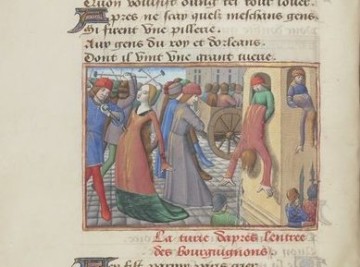 Quon voulsist oultre tel tout jouer.
Apres ne scay quelz meschans gens
Qi firent une pillerie.
Aux gens du roy et dorleans
Dont il vint une grant tuerie.
La turie dapres lentree
des bourguignons